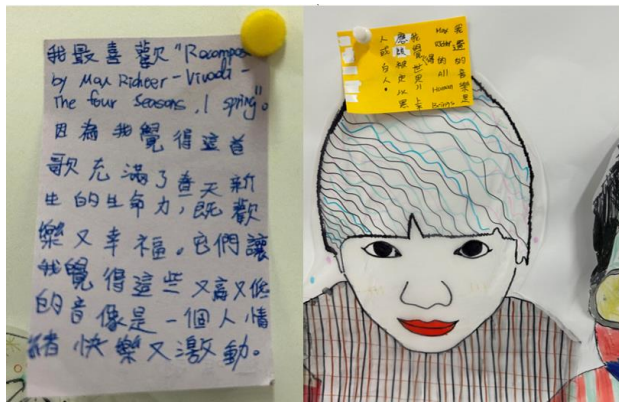 我最喜歡"Recomposed
by Max Richter - Vivaldi -
The four Seasons, 1 spring"。
因為我覺得這首
歌充滿了春天新
生的生命力，既歡
樂又幸福。它們讓
我覺得這些又高又低
的音像是一個人情
緒者快樂又激動。
我選的音樂是
Max Richter 的 All Human Beings